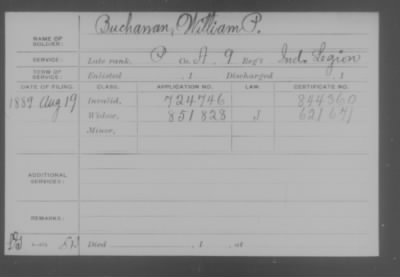 Buchanan, William P.
NAME OF SOLDIER:
SERVICE: Late rank, P Co. A, 9 Reg't Ind. Legion
TERM OF SERVICE: Enlisted , 1 Discharged , 1
DATE OF FILING. CLASS. APPLICATION NO. LAW. CERTIFICATE NO.
1889 Aug 19 Invalid, 724746 844360
Widow, 851828 J 621671
Minor,
ADDITIONAL SERVICES:
REMARKS:
Died , 1 , at